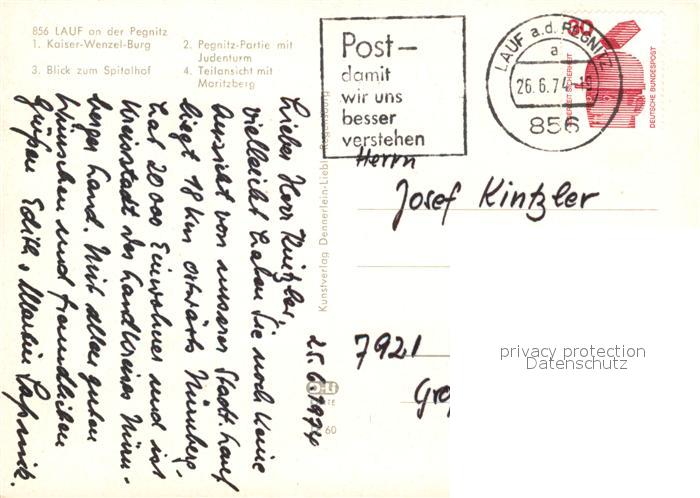 856 LAUF an der Pegnitz
1. Kaiser-Wenzel-Burg
2. Pegnitz-Partie mit
Judenturm
3. Blick zum Spitalhof
4. Teilansicht mit
Moritzberg
Post–
damit
wir uns
besser
verstehen
LAUF a.d. PEGNITZ
a
26.6.74
856
30
JEDERZEIT SICHERHEIT
DEUTSCHE BUNDESPOST
Herrn
Josef Kintzler
7921
privacy protection
Datenschutz
Kunstverlag Dennerlein-Liebl Regensburg
60
25.6.1974
Lieber Herr Kintzler,
vielleicht haben Sie noch keine
Ansicht von unserer Stadt. Lauf
liegt 18 km ostwärts Nürnberg,
hat 20 000 Einwohner und ist
Kreisstadt des Landkreises Nürn-
berger Land. Mit allen guten
Wünschen und freundlichen
Grüßen Edith, Martin